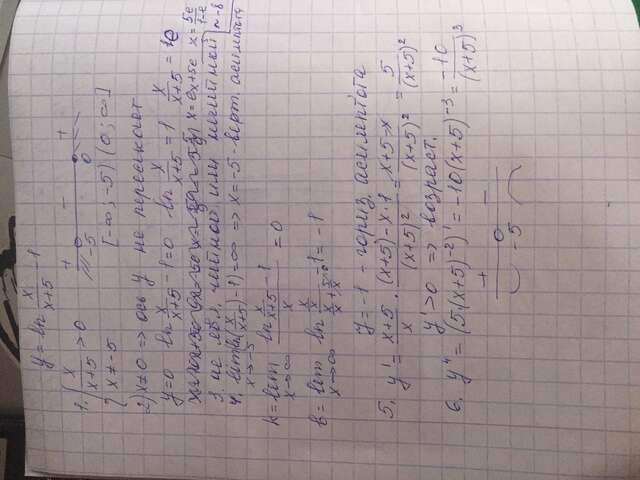 y = ln x/(x+5) - 1
1. { x/(x+5) > 0
x ≠ -5
+ - +
-5 0
[-∞; -5) (0; ∞]
2) x ≠ 0 => ось y не пересекает
y=0 ln x/(x+5) - 1 = 0 ln x/(x+5) = 1 x/(x+5) = e
x = ex+5e x = 5e/(1-e)
3. не явл. четной или нечетной
4. lim (ln(x/(x+5)) - 1) = ∞ => x = -5 - верт. асимптота
x→-5
k = lim (ln x/(x+5) - 1)/x = 0
x→∞
b = lim ln x/(x+5) - 1 = -1
x→∞
y = -1 - гориз. асимптота
5. y' = (x+5)/x · ((x+5) - x·1)/(x+5)² = (x+5-x)/(x+5)² = 5/(x+5)²
y' > 0 => возраст.
6. y'' = (5(x+5)⁻²)' = -10(x+5)⁻³ = -10/(x+5)³
+ -
-5